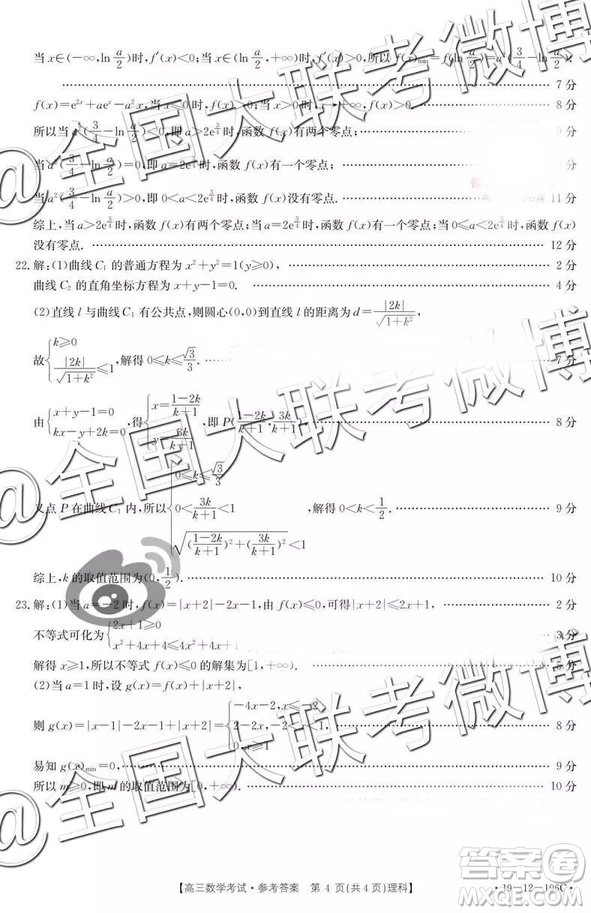 当 x∈(-∞,ln a/2)时,f′(x)<0;当 x∈(ln a/2,+∞)时,f′(x)>0. 所以 f(x)min=f(ln a/2)=a²(3/4-ln a/2).
7 分
f(x)=e²ˣ+aeˣ-a²x,当 x>0 时,f(x)>0;当 x→+∞时,f(x)>0. 8 分
所以当 a²(3/4-ln a/2)<0,即 a>2e^(3/4)时,函数 f(x)有两个零点; 9 分
当 a²(3/4-ln a/2)=0,即 a=2e^(3/4)时,函数 f(x)有一个零点;
当 a²(3/4-ln a/2)>0,即 0<a<2e^(3/4)时,函数 f(x)没有零点. 11 分
综上,当 a>2e^(3/4)时,函数 f(x)有两个零点;当 a=2e^(3/4)时,函数 f(x)有一个零点;当 0≤a<2e^(3/4)时,函数 f(x)
没有零点. 12 分
22.解:(1)曲线 C₁ 的普通方程为 x²+y²=1(y≥0), 2 分
曲线 C₂ 的直角坐标方程为 x+y-1=0. 4 分
(2)直线 l 与曲线 C₁ 有公共点,则圆心(0,0)到直线 l 的距离为 d=|2k|/√(1+k²),
故{k≥0, |2k|/√(1+k²)≤1, 解得 0≤k≤√3/3. 7 分
由{x+y-1=0, kx-y+2k=0, 得{x=(1-2k)/(k+1), y=3k/(k+1), 即 P((1-2k)/(k+1),3k/(k+1)), 8 分
又点 P 在曲线 C₁ 内,所以{0≤k≤√3/3, 0<3k/(k+1)<1, √(((1-2k)/(k+1))²+(3k/(k+1))²)<1, 解得 0<k<1/2. 9 分
综上,k 的取值范围为(0,1/2). 10 分
23.解:(1)当 a=-2 时,f(x)=|x+2|-2x-1,由 f(x)≤0,可得|x+2|≤2x+1, 2 分
不等式可化为{2x+1≥0, x²+4x+4≤4x²+4x+1, 3 分
解得 x≥1,所以不等式 f(x)≤0 的解集为[1,+∞).
(2)当 a=1 时,设 g(x)=f(x)+|x+2|,
则 g(x)=|x-1|-2x-1+|x+2|={-4x-2,x≤-2, 2-2x,-2<x<1, 0,x≥1 8 分
易知 g(x)min=0, 9 分
所以 m≥0,即 m 的取值范围为[0,+∞). 10 分
【高三数学考试·参考答案 第 4 页(共 4 页)理科】
·19-12-196C·
@全国大联考微博
@全国大联考微博
@全国大联考微博
答案圈
MXQE.COM